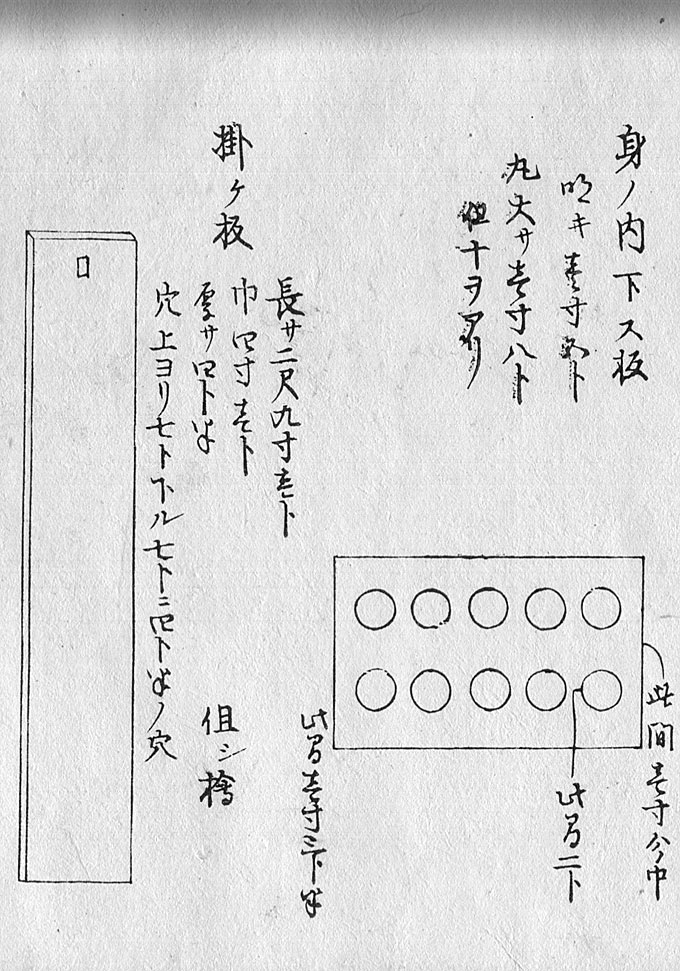 身ノ内下ス板
明キ壱寸五ト
丸大サ壱寸八ト
但十ヲアリ
此間壱寸分中
此間二ト
此間壱寸三ト半
掛ケ板
長サ二尺九寸壱ト
巾四寸壱ト
厚サ四ト半
穴上ヨリ七ト下ル七トニ四ト半ノ穴
但シ檜